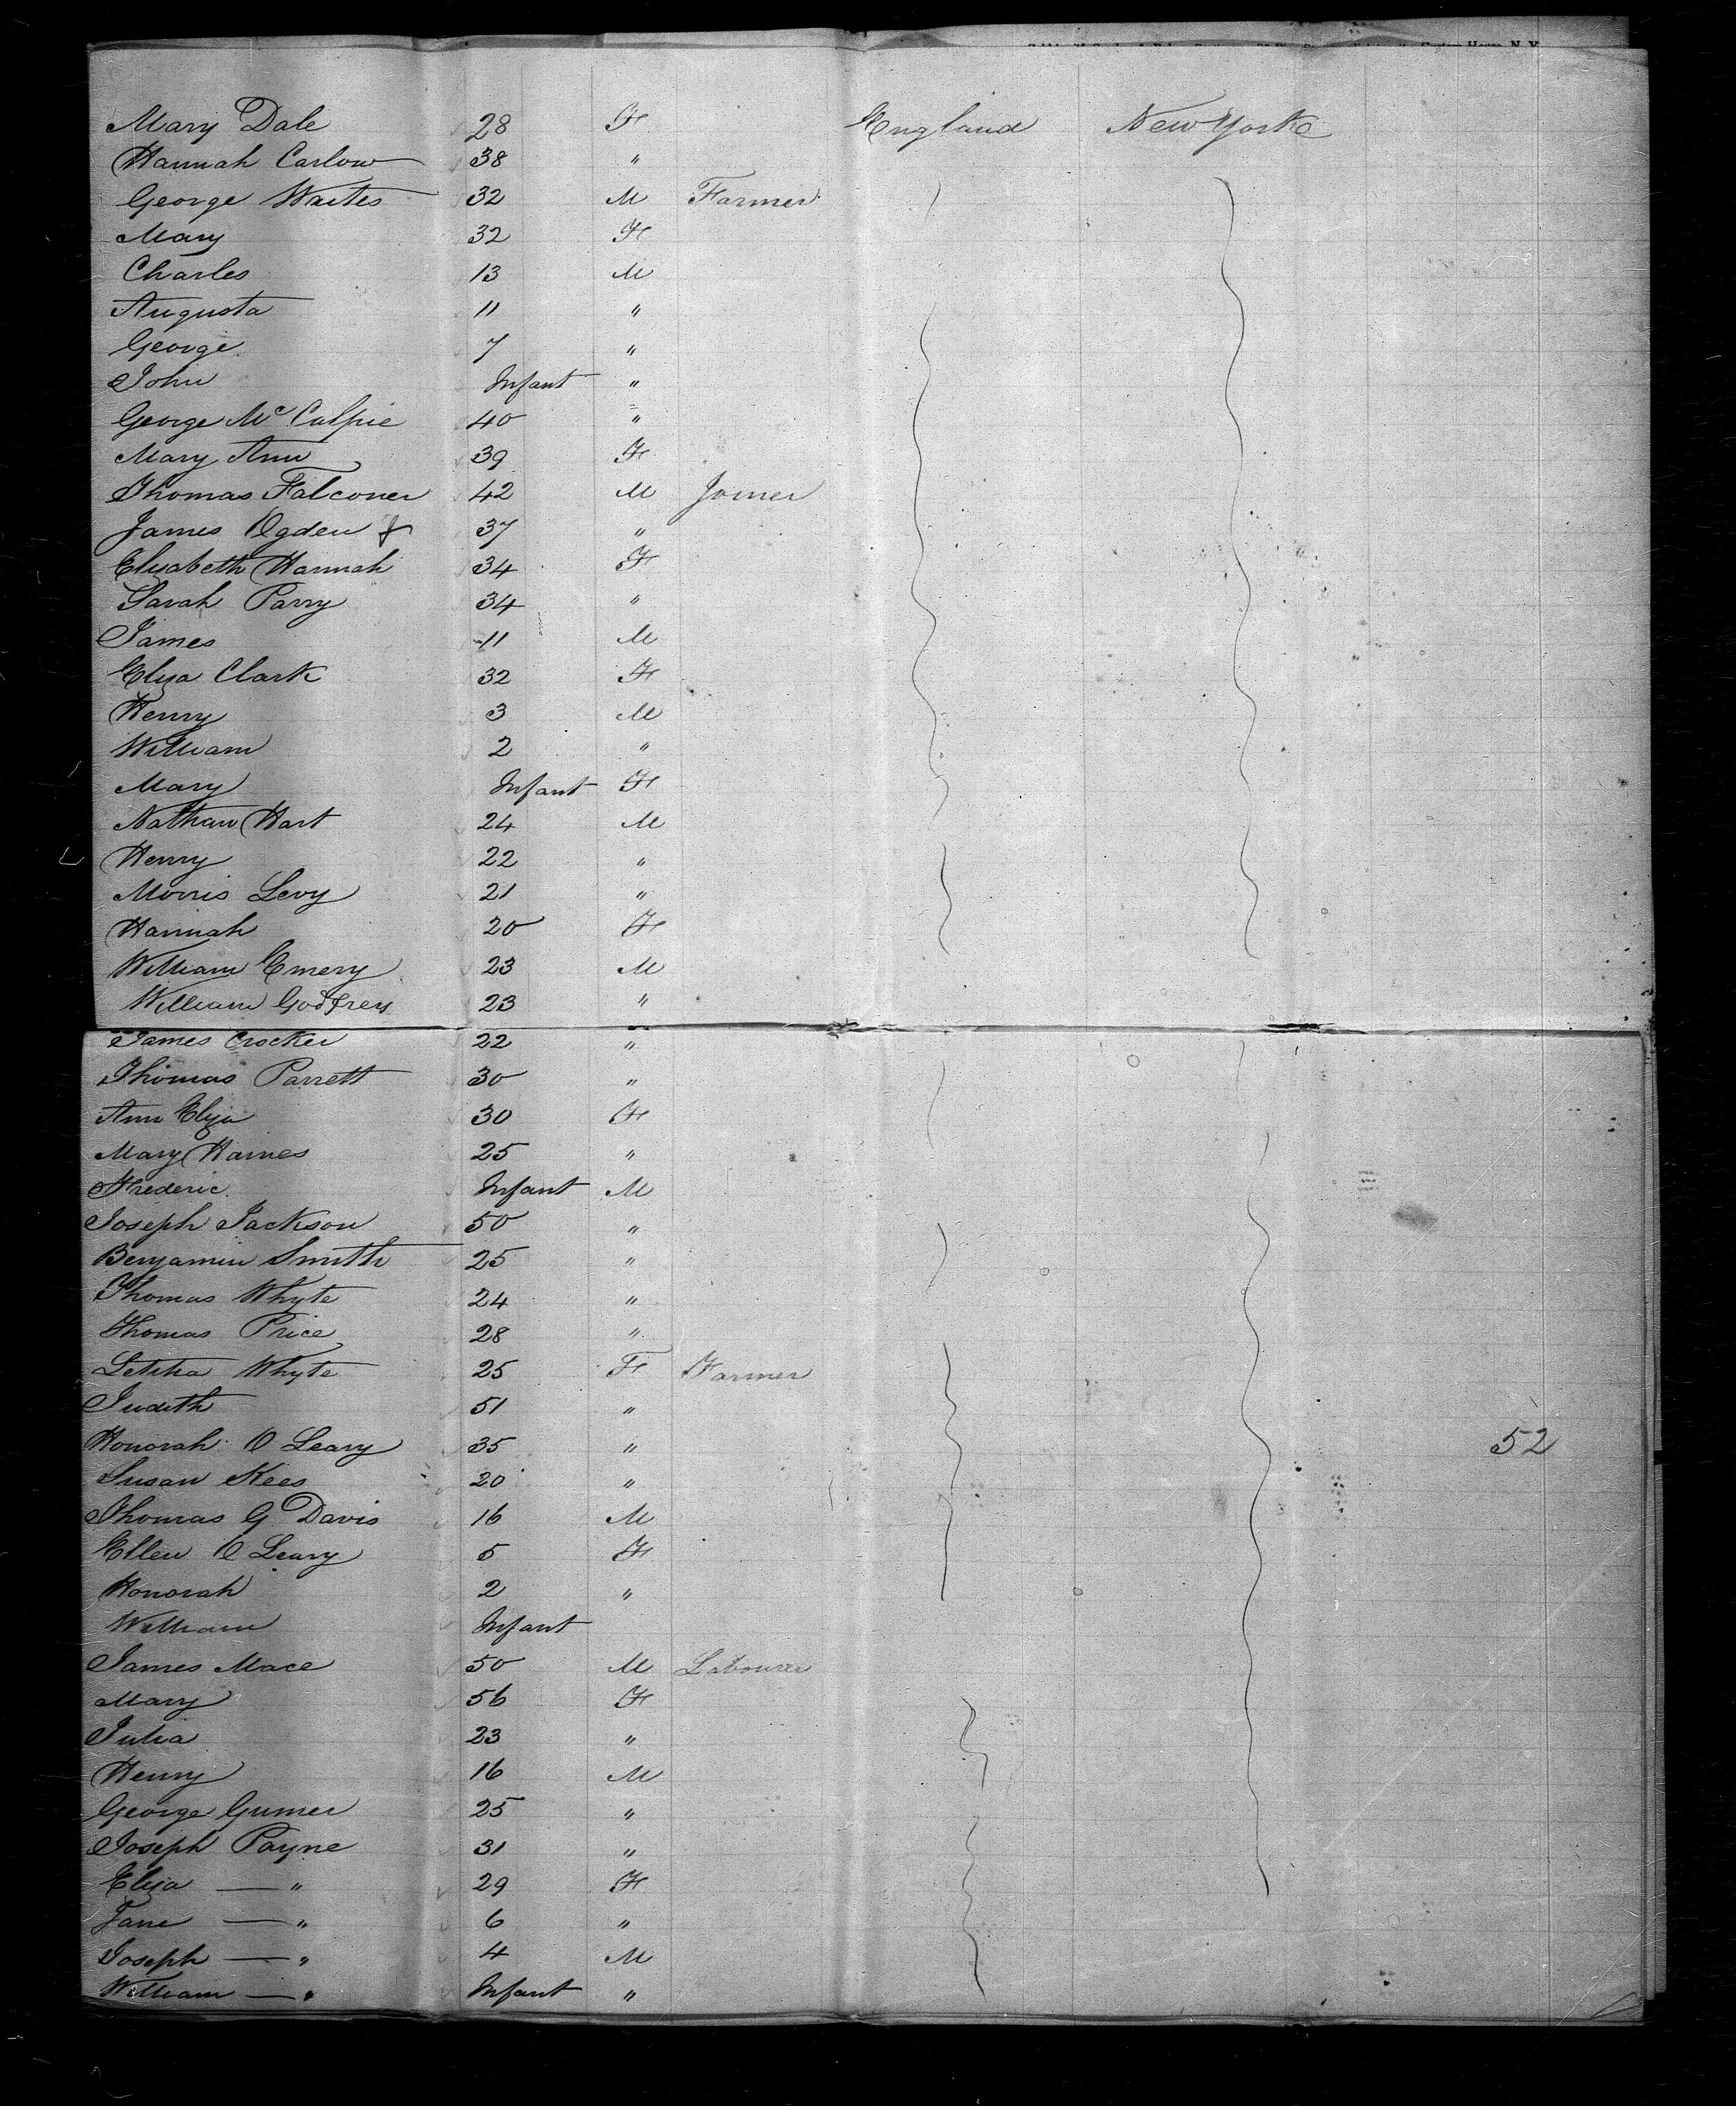 Custom House, N. Y.
Mary Dale 28 F England New York
Hannah Carlow 38 "
George Waites 32 M Farmer
Mary 32 F
Charles 13 M
Augusta 11 "
George 7 "
John Infant "
George Mc Calpie 40 "
Mary Ann 39 F
Thomas Falconer 42 M Joiner
James Ogden 37 "
Elizabeth Hannah 34 F
Sarah Parry 34 "
James 11 M
Eliza Clark 32 F
Henry 3 M
William 2 "
Mary Infant F
Nathan Hart 24 M
Henry 22 "
Morris Levy 21 "
Hannah 20 F
William Emery 23 M
William Godfrey 23 "
James Crocker 22 "
Thomas Parrett 30 "
Ann Eliza 30 F
Mary Haines 25 "
Frederic Infant M
Joseph Jackson 50 "
Benjamin Smith 25 "
Thomas Whyte 24 "
Thomas Price 28 "
Letitia Whyte 25 F Farmer
Judith 51 "
Honorah O Leary 35 " 52
Susan Kees 20 "
Thomas G Davis 16 M
Ellen O Leary 5 F
Honorah 2 "
William Infant
James Mace 50 M Labourer
Mary 56 F
Julia 23 "
Henry 16 M
George Gumer 25 "
Joseph Payne 31 "
Eliza — " 29 F
Jane — " 6 "
Joseph — " 4 M
William — " Infant "